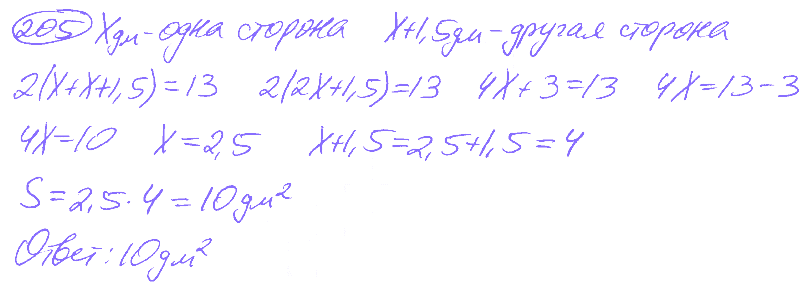 205 X дм - одна сторона X+1,5 дм - другая сторона
2(X+X+1,5)=13 2(2X+1,5)=13 4X+3=13 4X=13-3
4X=10 X=2,5 X+1,5=2,5+1,5=4
S=2,5·4=10 дм²
Ответ: 10 дм²